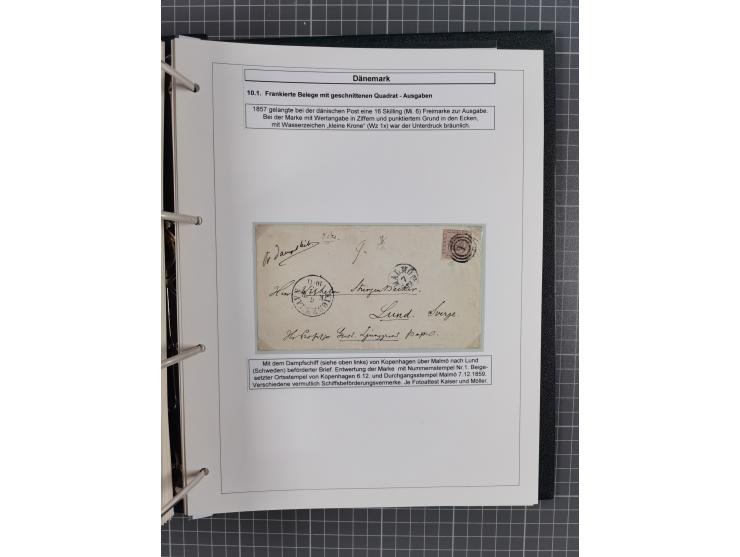 Dänemark
10.1. Frankierte Belege mit geschnittenen Quadrat - Ausgaben
1857 gelangte bei der dänischen Post eine 16 Skilling (Mi. 6) Freimarke zur Ausgabe.
Bei der Marke mit Wertangabe in Ziffern und punktiertem Grund in den Ecken,
mit Wasserzeichen „kleine Krone“ (Wz 1x) war der Unterdruck bräunlich.
MALMÖ
Lund. Sverge.
Mit dem Dampfschiff (siehe oben links) von Kopenhagen über Malmö nach Lund
(Schweden) beförderter Brief. Entwertung der Marke mit Nummernstempel Nr.1. Beige-
setzter Ortsstempel von Kopenhagen 6.12. und Durchgangsstempel Malmö 7.12.1859.
Verschiedene vermutlich Schiffsbeförderungsvermerke. Je Fotoattest Kaiser und Möller.